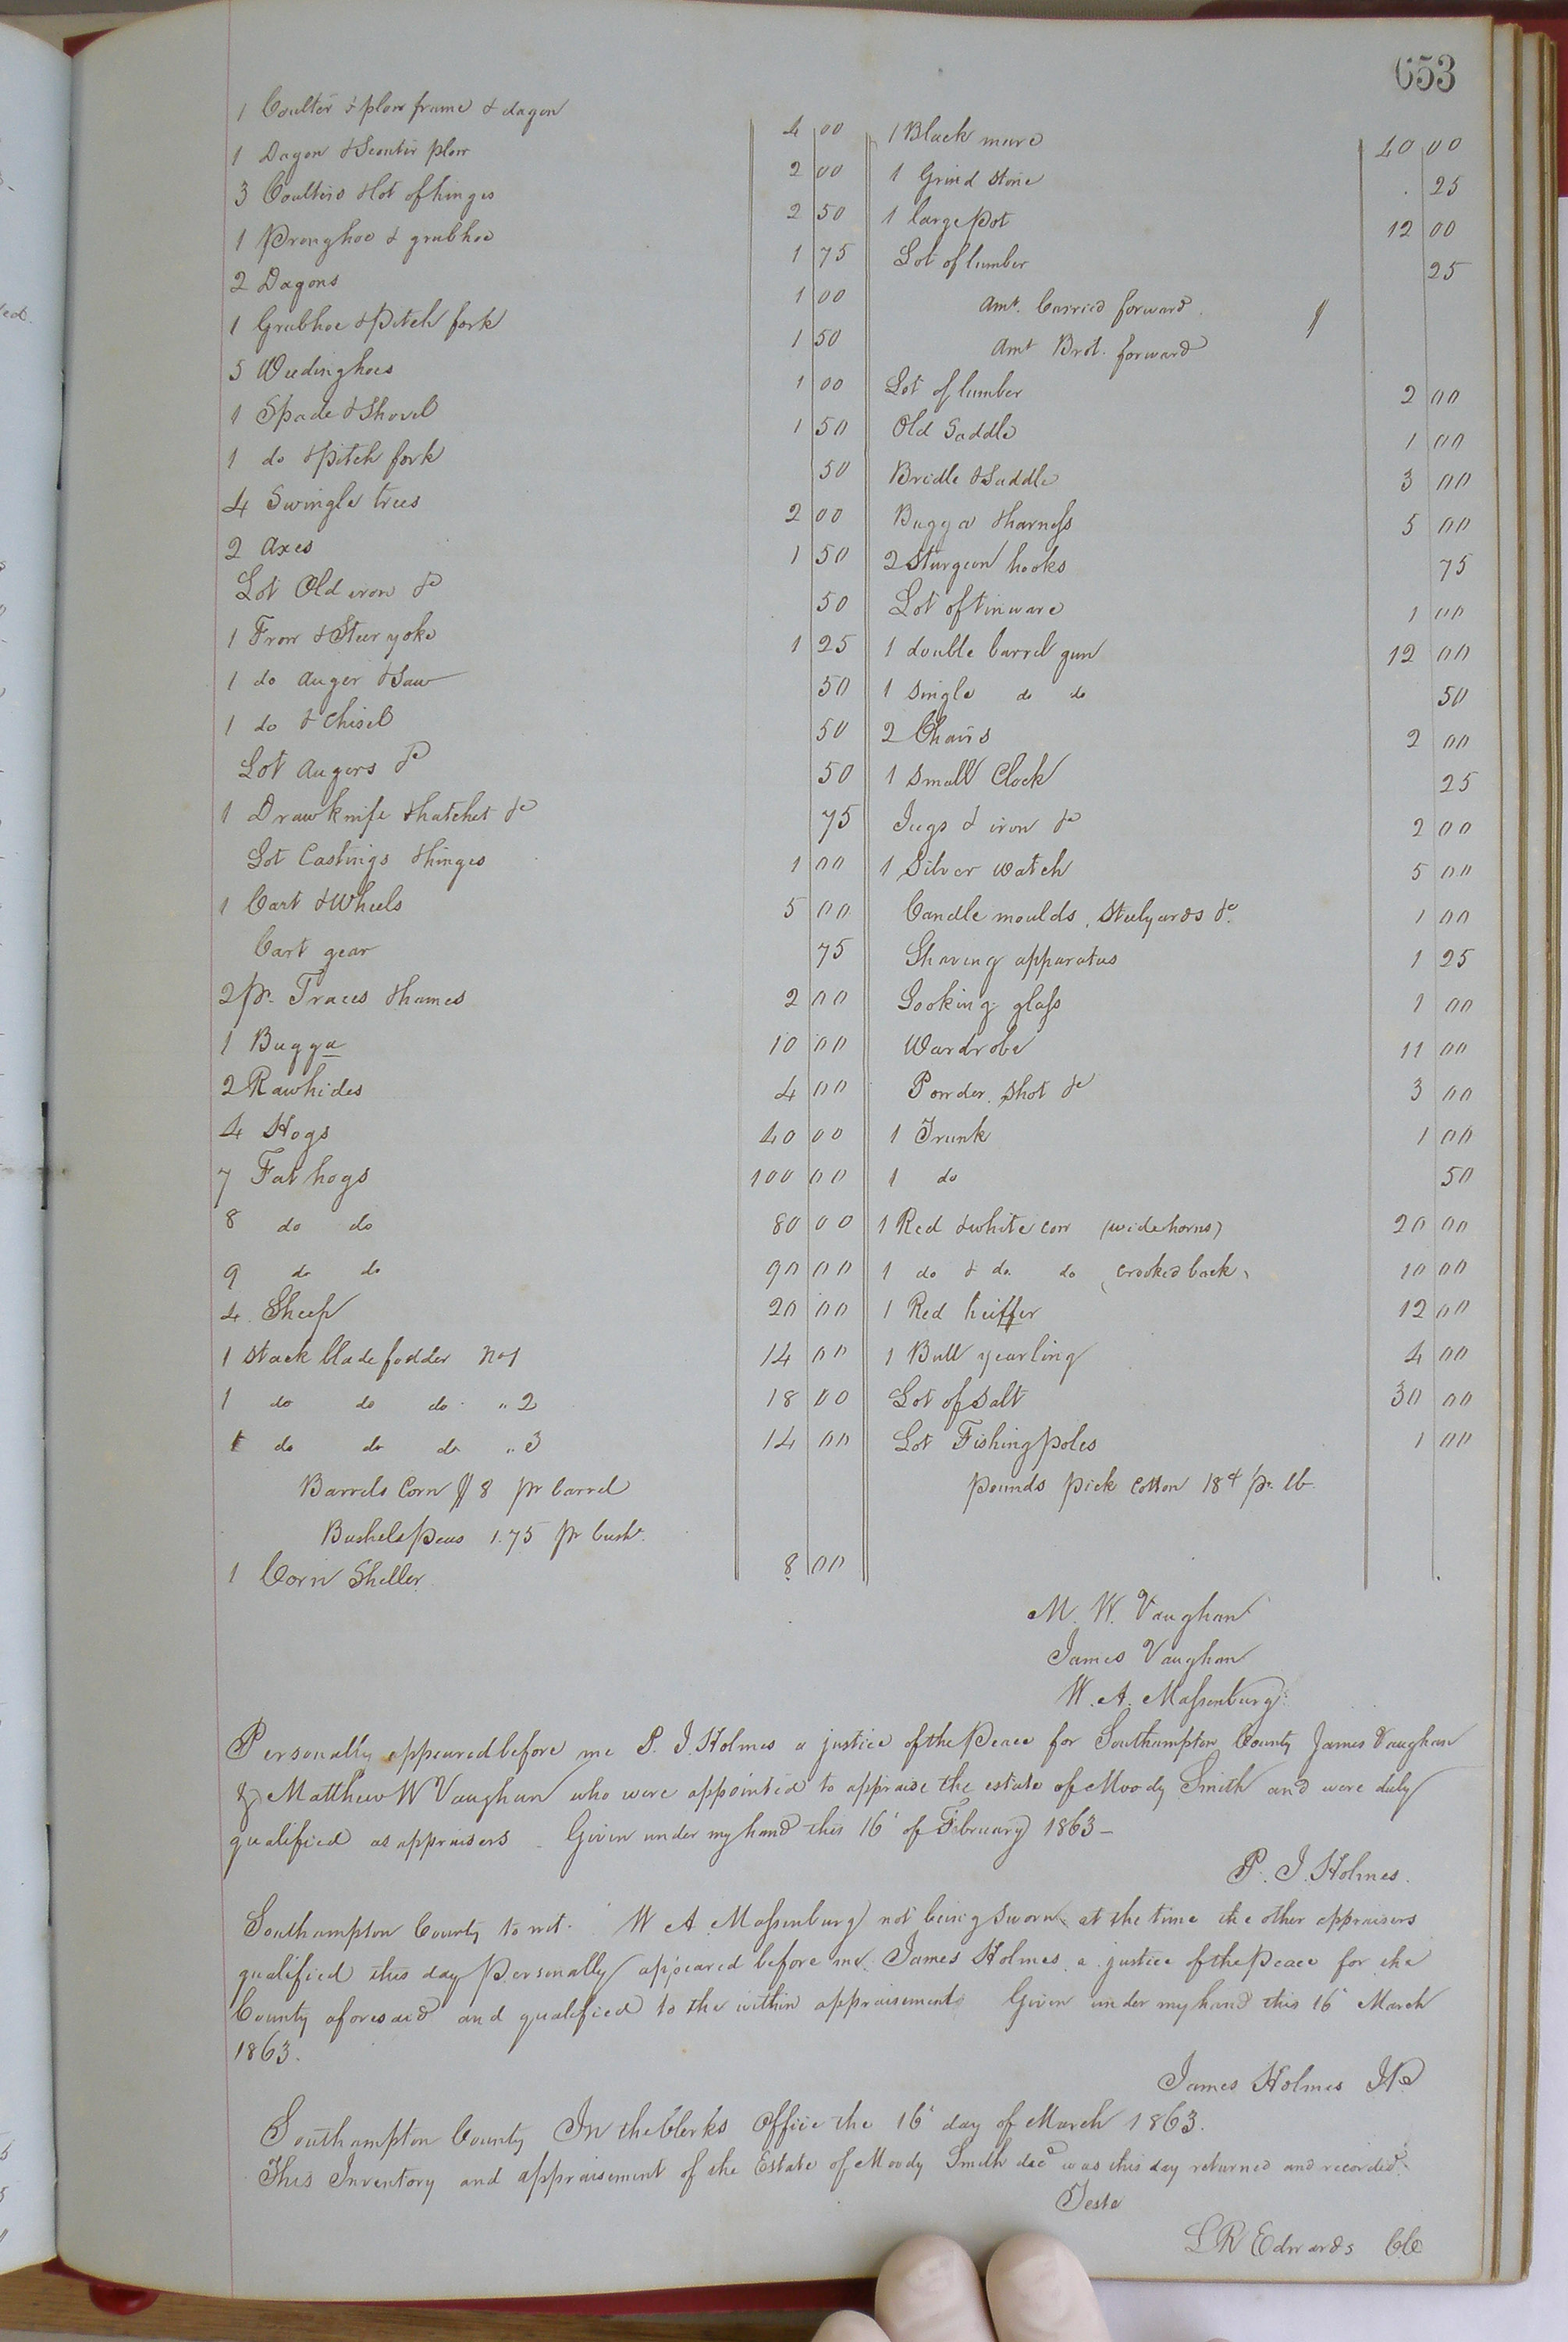 653
1 Coulter & plow frame & dagon 4 00
1 Dagon & Scouter plow 2 00
3 Coulters & lot of hinges 2 50
1 Pronghoe & grubhoe 1 75
2 Dagons 1 00
1 Grubhoe & Pitch fork 1 50
5 Weedinghoes 1 00
1 Spade & Shovel 1 50
1 do & Pitch fork 50
4 Swingle trees 2 00
2 Axes 1 50
Lot Old iron &c 50
1 Frow & Steer yoke 1 25
1 do Auger & Saw 50
1 do & Chisel 50
Lot Augers &c 50
1 Drawknife & hatchet &c 75
Lot Castings & hinges 1 00
1 Cart & Wheels 5 00
Cart gear 75
2 pr. Traces & hames 2 00
1 Bugga 10 00
2 Rawhides 4 00
4 Hogs 40 00
7 Fat hogs 100 00
8 do do 80 00
9 do do 90 00
4 Sheep 20 00
1 Stack blade fodder No 1 14 00
1 do do do " 2 18 00
1 do do do " 3 14 00
Barrels Corn $8 pr barrel
Bushels peas 1.75 pr bush.
1 Corn Sheller 8 00
1 Black mare 40 00
1 Grind Stone 25
1 large Pot 12 00
Lot of lumber 25
Amt. Carried forward $
Amt Brot. forward
Lot of lumber 2 00
Old Saddle 1 00
Bridle & Saddle 3 00
Bugga & harness 5 00
2 Sturgeon hooks 75
Lot of tinware 1 00
1 double barrel gun 12 00
1 Single do do 50
2 Chairs 2 00
1 Small Clock 25
Jugs & iron &c 2 00
1 Silver Watch 5 00
Candle moulds, Steelyards &c. 1 00
Shaving apparatus 1 25
Looking glass 1 00
Wardrobe 11 00
Powder, Shot &c 3 00
1 Trunk 1 00
1 do 50
1 Red & white cow (wide horns) 20 00
1 do & do. do (crooked back) 10 00
1 Red heiffer 12 00
1 Bull yearling 4 00
Lot of Salt 30 00
Lot Fishing poles 1 00
pounds pick cotton 18¢ pr. lb
M. W. Vaughan
James Vaughan
W. A. Massenburg
Personally appeared before me P. J. Holmes a justice of the Peace for Southampton County James Vaughan
& Matthew W Vaughan who were appointed to appraise the estate of Moody Smith and were duly
qualified as appraisers. Given under my hand this 16' of February 1863 -
P. J. Holmes.
Southampton County to wit. W A Massenburg not being sworn at the time the other appraisers
qualified this day personally appeared before me James Holmes a justice of the Peace for the
County aforesaid and qualified to the within appraisement. Given under my hand this 16' March
1863.
James Holmes JP.
Southampton County In the Clerks Office the 16' day of March 1863.
This Inventory and appraisement of the Estate of Moody Smith decd was this day returned and recorded.
Teste
L R Edwards Clk